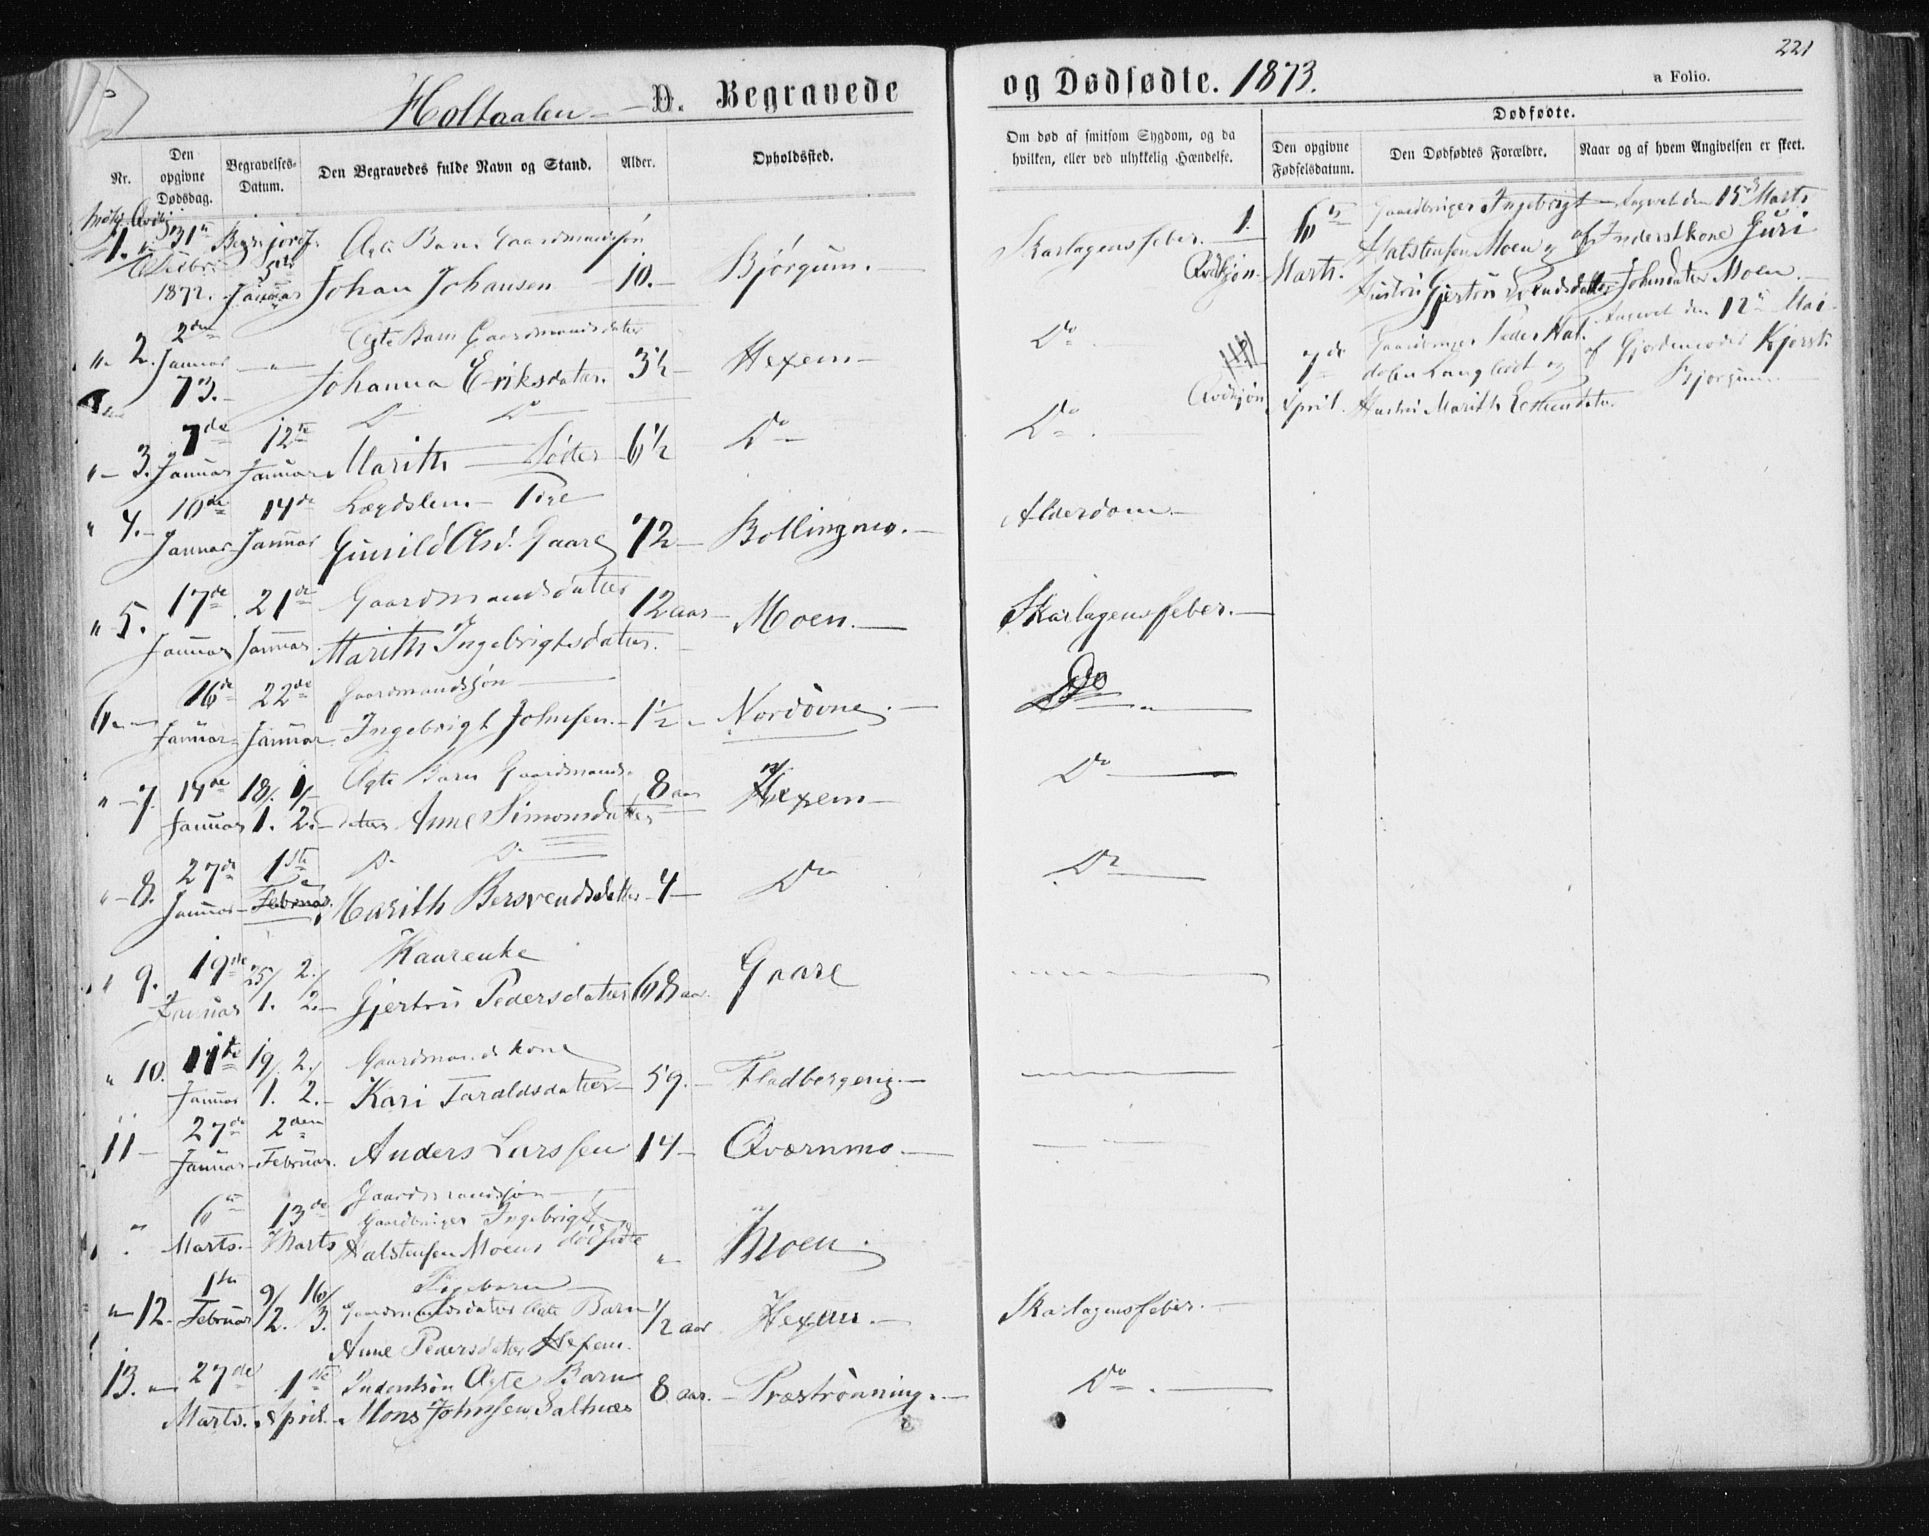 221
Holtaalen D. Begravede og Dødfødte. 1873.
a Folio.
Dødfødte.
Nr.
Den opgivne Dødsdag.
Begravelses-Datum.
Den Begravedes fulde Navn og Stand.
Alder.
Opholdssted.
Om død af smitsom Sygdom, og da hvilken, eller ved ulykkelig Hændelse.
Den opgivne Fødselsdatum.
Den Dødfødtes Forældre.
Naar og af hvem Angivelsen er skeet.
1. 31te 1872. 5te Januar Ægte Barn Gaardmandssøn
Johan Johansen 10. Bjørgum. Skarlagensfeber.
2. 2den Januar 73. Ægte Barn Gaardmandsdatter
Johanna Eriksdatter. 3½ Hexem Do
3. 7de Januar 12te Januar Do Do
Marith Do 6½ Do Do
4. 10de Januar 14de Januar Lægdslem Pige
Gunild Olsd. Gaare 72 Bollingmo. Alderdom
5. 17de Januar 21de Januar Gaardmandsdatter
Marith Ingebrigtsdatter. 12 aar Moen. Skarlagensfeber.
6. 16de Januar 22de Januar Gaardmandssøn
Ingebrigt Johnsen 1½ Nordøvne. Do
7. 14de Januar 18/1. 1/2. Ægte Barn Gaardmands-
datter Anne Simonsdatter 8 aar Hexem Do
8. 27de Januar 1ste Februar. Do Do
Marith Bersvendsdatter 4 Do Do
9. 19de Januar 25/1. 2/2. Kaarenke
Gjertru Pedersdatter 68 aar. Gaare
10. 11te Januar 19/1. 2/2. Gaardmandskone
Kari Taraldsdatter 59. Fladbergeng.
11 27de Januar 2den Februar. Anders Larssen 14 Qværnmo.
Gaardmandssøn
6te Marts. 13de Marts Gaardbruger Ingebrigt
Halstensen Moens dødfødte Moen.
Pigebarn
12. 1ste Februar 9/2. 16/3. Gaardmandsdatter Ægte Barn
Anne Pedersdatter Hexem. ½ aar Hexem. Skarlagensfeber.
13. 27de Marts. 1ste April. Ægte Barn
Mons Johnsen Salnæs 8 aar. Præstrønning. Do
1. 6te Marts. Gaardbruger Ingebrigt
Halstensen Moen og
Hustru Gjertru
den 15de Marts
af Inderstkone Guri
Johnsdatter Moen.
7de April. Gaardbruger Peder
og
Hustru Marith
den 12te Mai
af Gjordemoder Kjersti
Bjørgum.